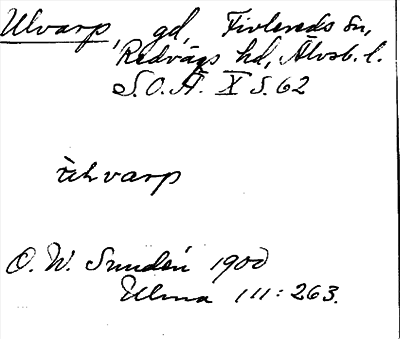 Ulvarp, gd, Fivlereds sn,
Redvägs hd, Älvsb. l.
S.O.Ä. X S. 62
varp
O. W. Sundén 1900
Ulma 111: 263.